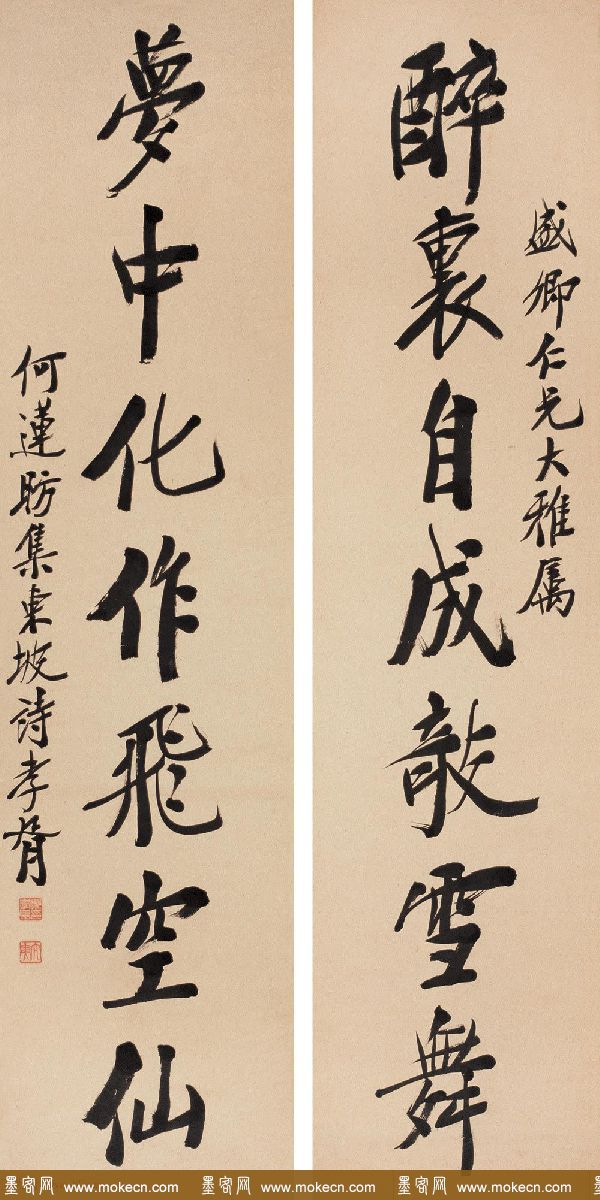 盛卿仁兄大雅属
醉裏自成敧雪舞
夢中化作飛空仙
何蓮昉集東坡詩孝胥
墨客网 www.mokecn.com 墨客网 www.mokecn.com 墨客网 www.mokecn.com 墨客网